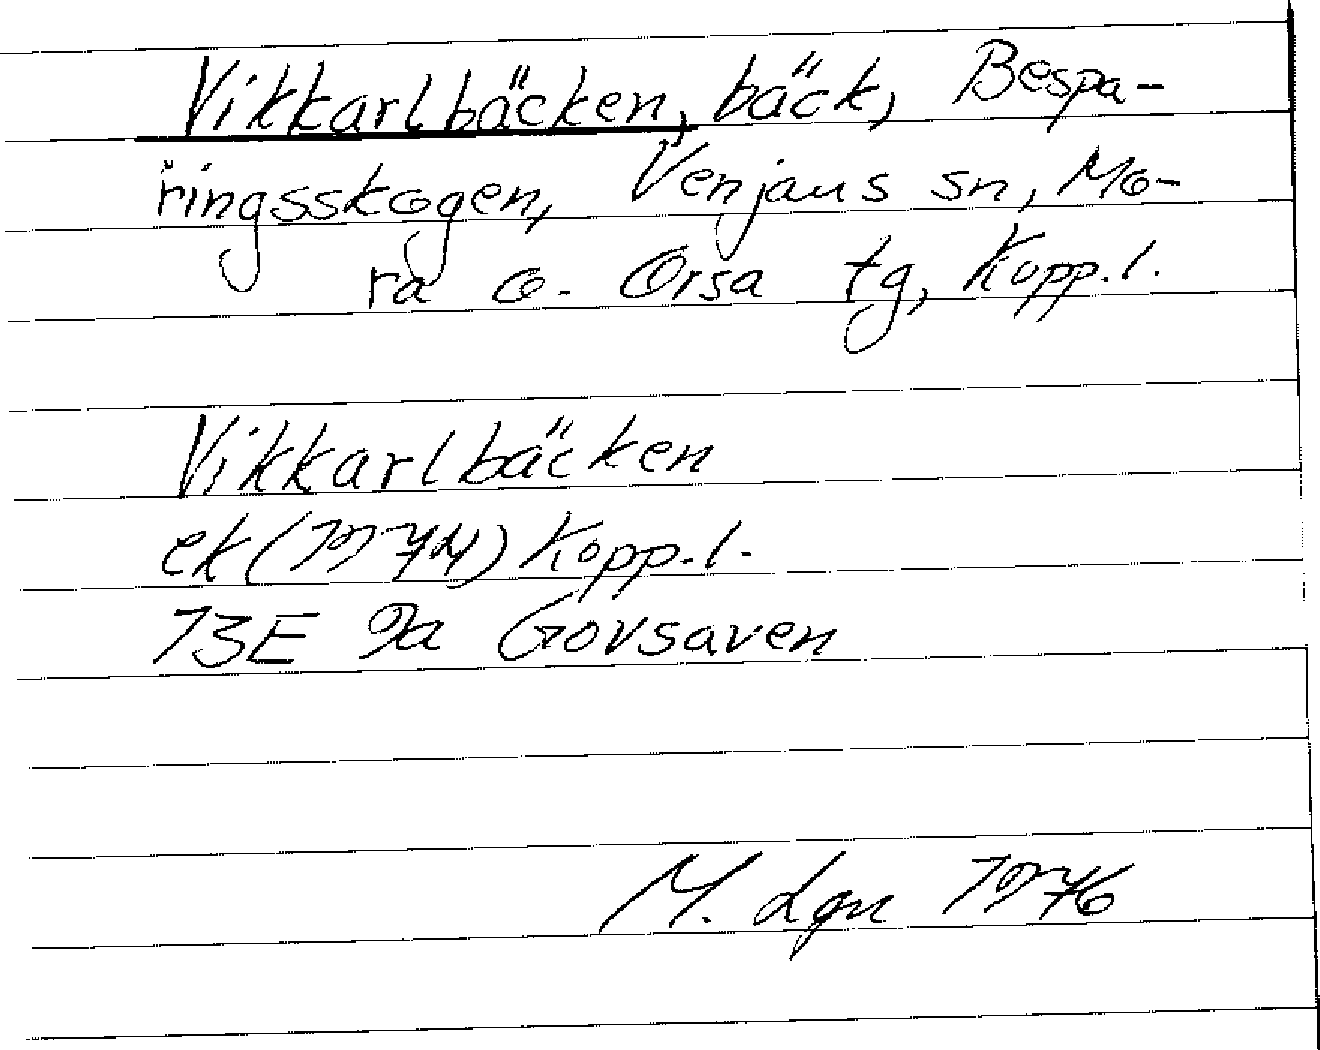 Vikkarlbäcken, bäck, Bespa-
ringsskogen, Venjans sn, Mo-
ra o. Orsa tg, Kopp.l.
Vikkarlbäcken
ek (1974) Kopp.l.
13E 9a Govsaven
M. Lgn 1976